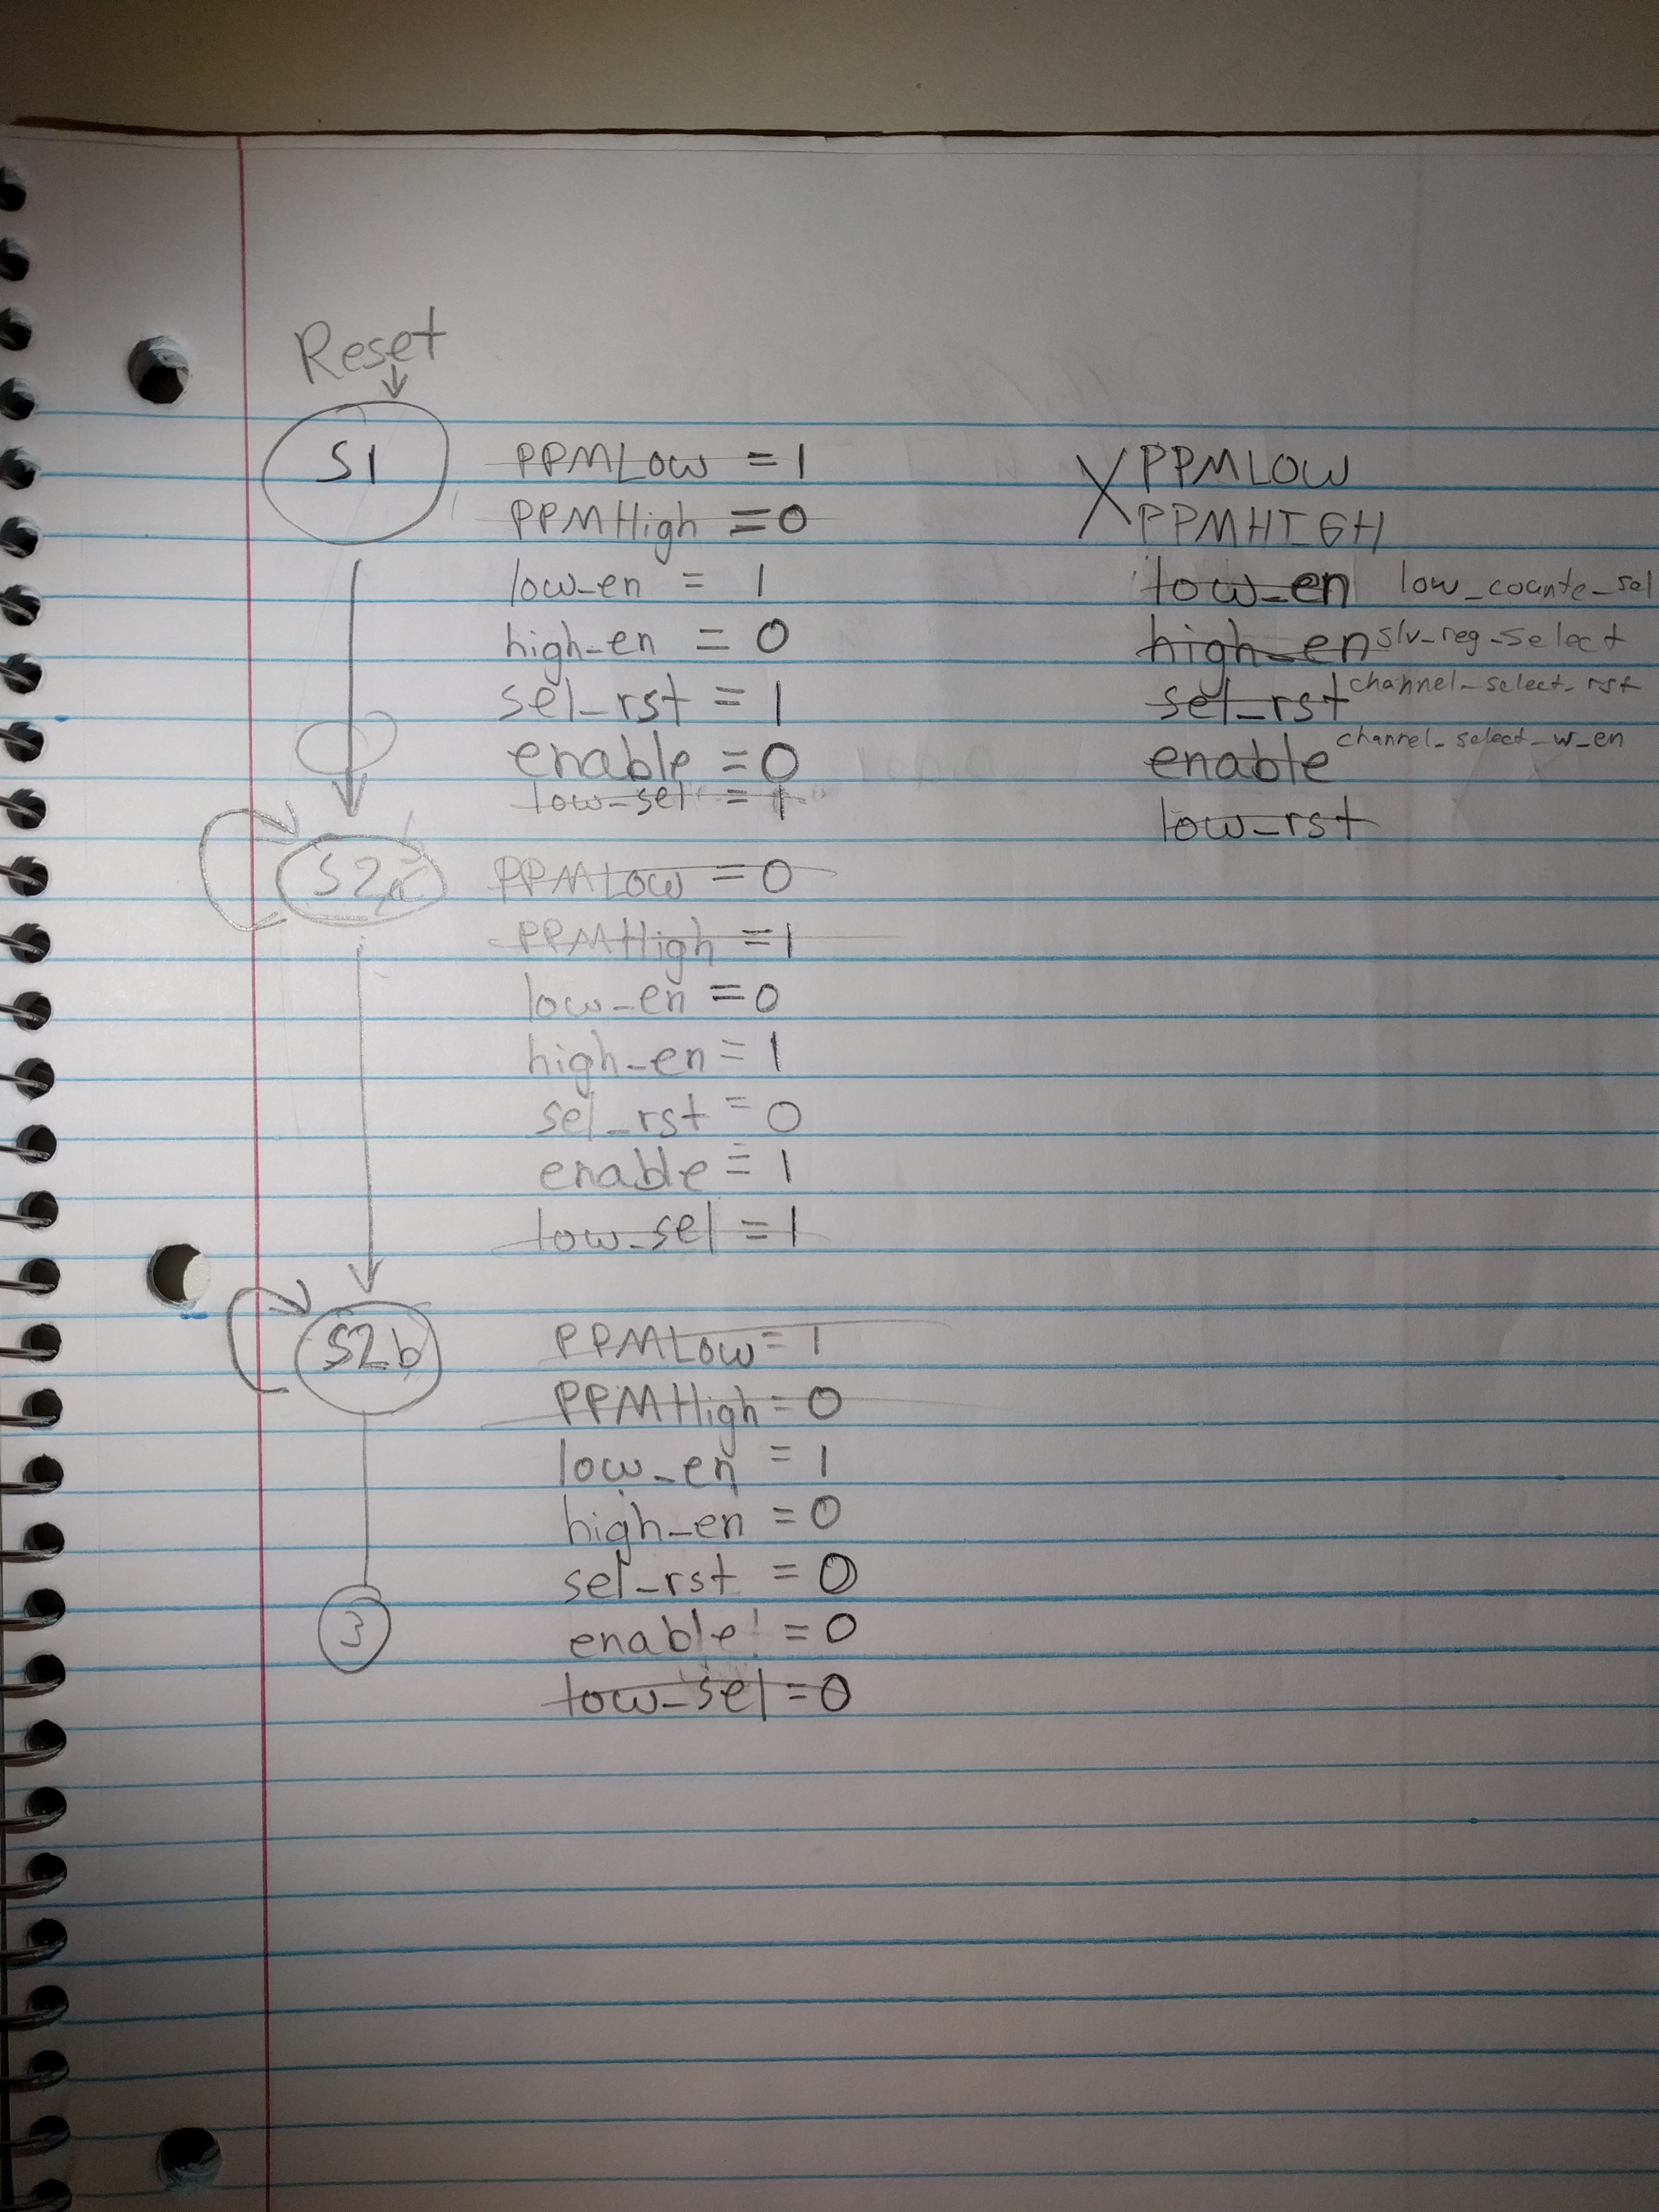 Reset
S1
PPMLow = 1
PPMHigh = 0
low_en = 1
high_en = 0
sel_rst = 1
enable = 0
low_sel = 1
S2a
PPMLow = 0
PPMHigh = 1
low_en = 0
high_en = 1
sel_rst = 0
enable = 1
low_sel = 1
S2b
PPMLow = 1
PPMHigh = 0
low_en = 1
high_en = 0
sel_rst = 0
enable = 0
low_sel = 0
3
X PPMLOW
PPMHIGH
low_en low_counte_sel
high_en slv_reg_select
sel_rst channel_select_rst
enable channel_select_w_en
low_rst